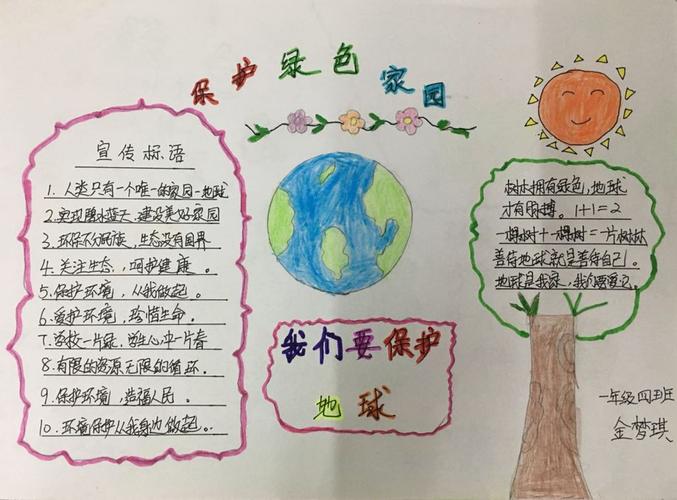 保护绿色家园
宣传标语
1. 人类只有一个唯一的家园-地球
2. 实现碧水蓝天，建设美好家园
3. 环保不分民族，生态没有国界
4. 关注生态，呵护健康。
5. 保护环境，从我做起。
6. 爱护环境，珍惜生命。
7. 学校一片绿，学生心中一片春
8. 有限的资源无限的循环.
9. 保护环境，造福人民。
10. 环境保护从我身边做起。
我们要保护
地球
树木拥有绿色，地球
才有脉搏。1+1=2
一棵树+一棵树=一片树林
善待地球就是善待自己。
地球是我家，我们要爱它。
一年级四班
金梦琪